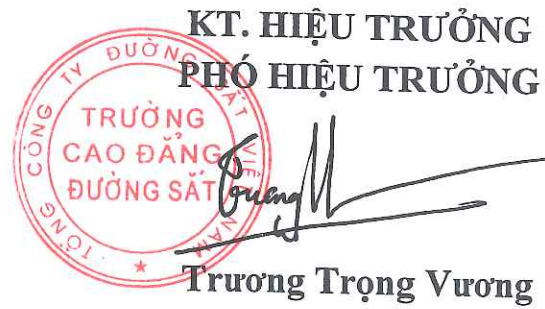 KT. HIỆU TRƯỞNG
PHÓ HIỆU TRƯỞNG
TỔNG CÔNG TY ĐƯỜNG SẮT VIỆT NAM
TRƯỜNG
CAO ĐẲNG
ĐƯỜNG SẮT
Trương Trọng Vương